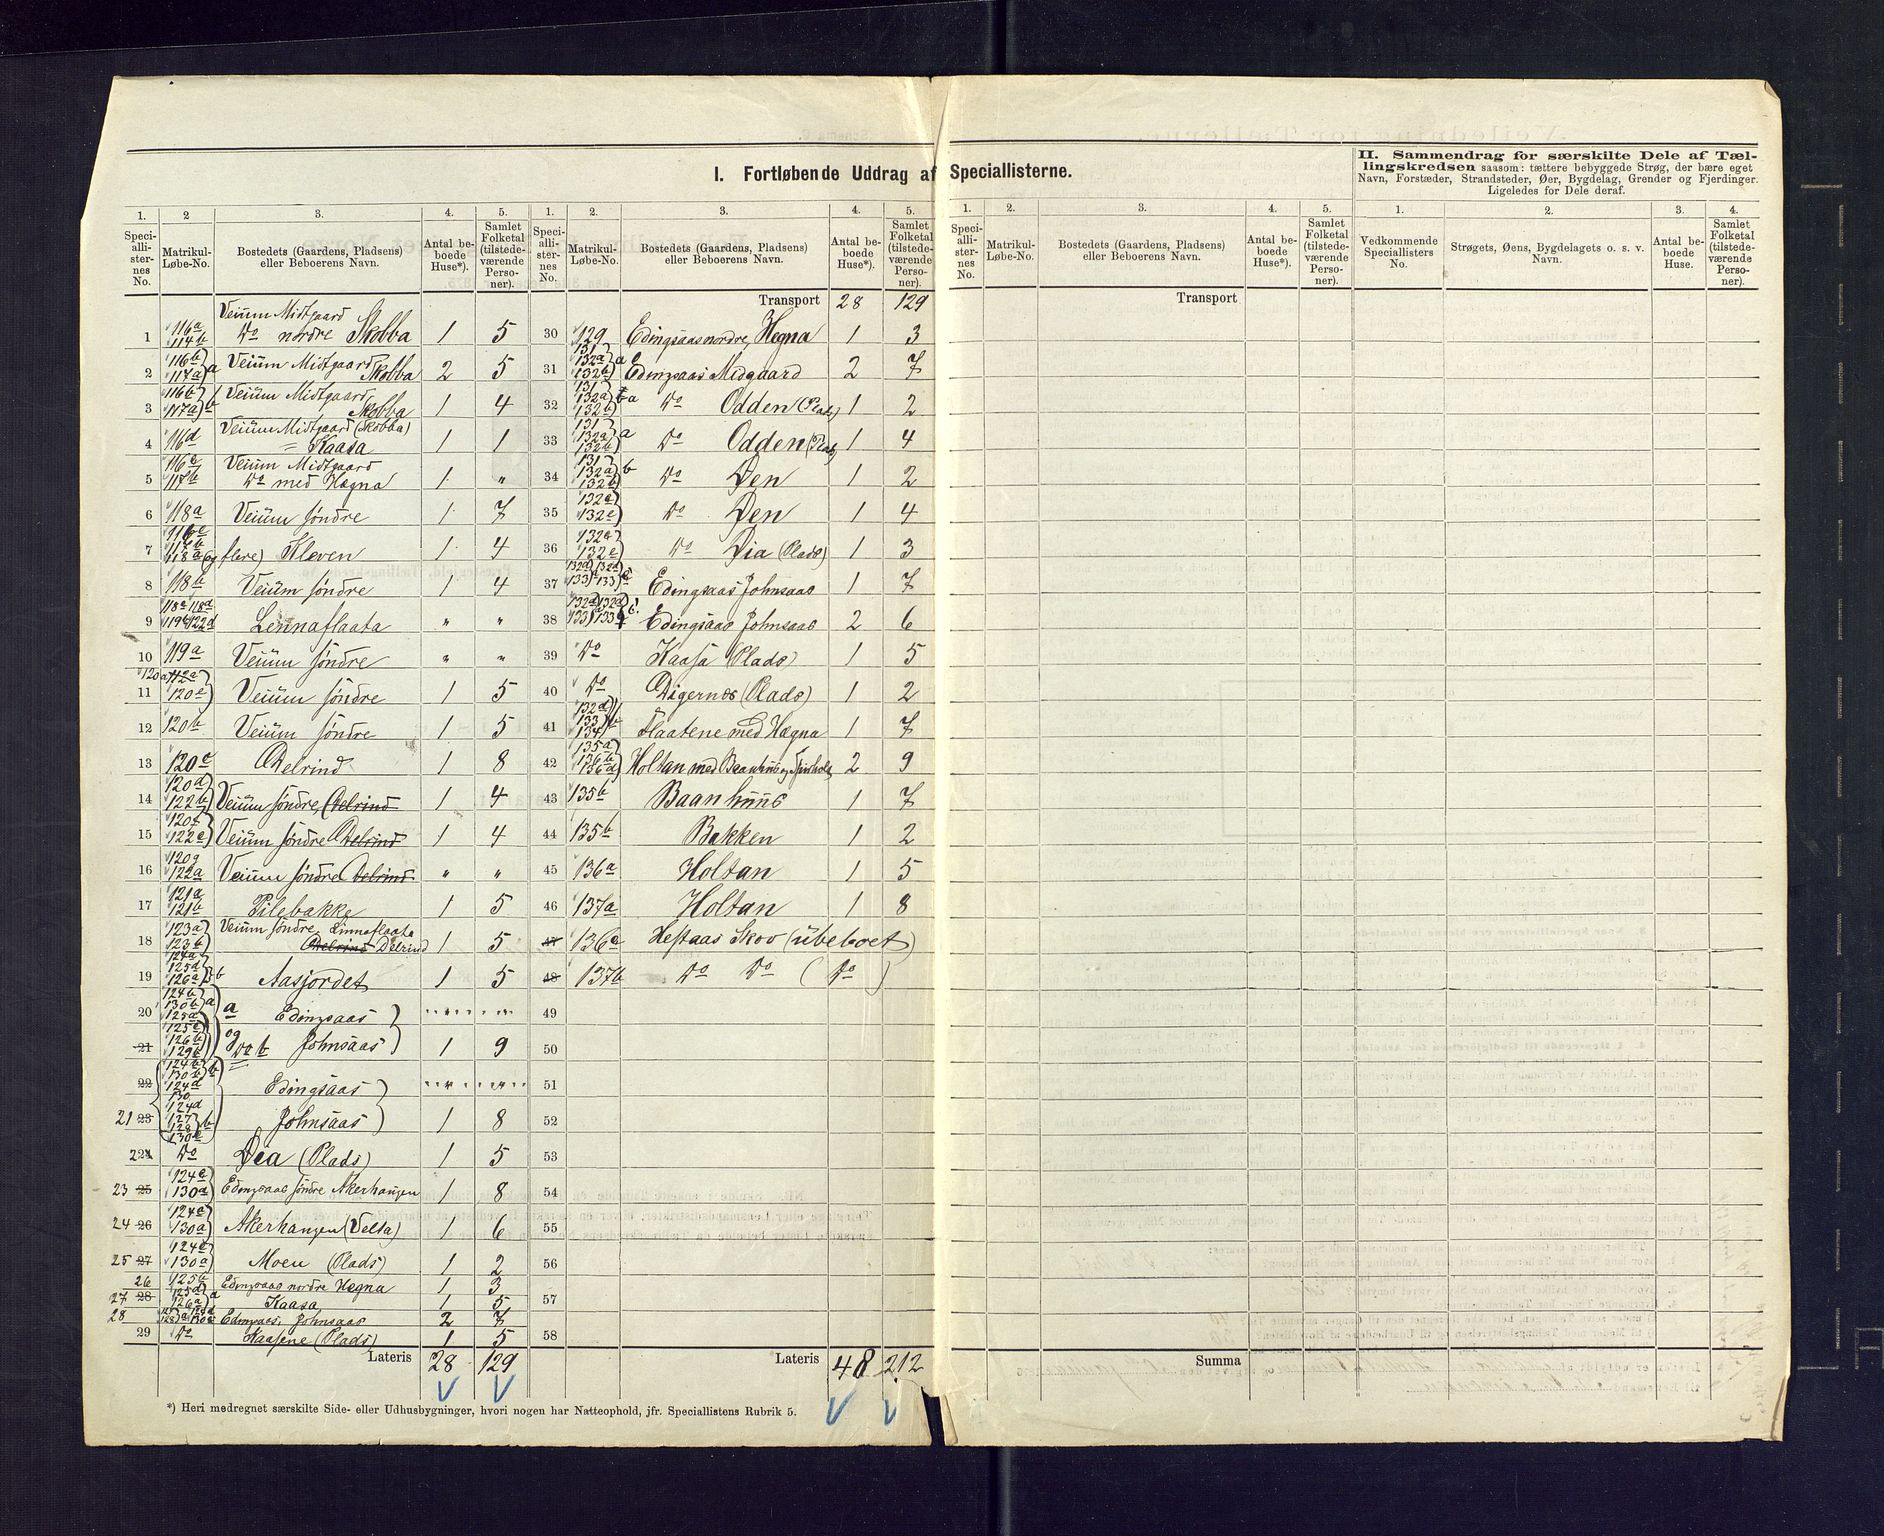 I. Fortløbende Uddrag af Speciallisterne.
II. Sammendrag for særskilte Dele af Tæl-
lingskredsen saasom: tættere bebyggede Strøg, der bære eget
Navn, Forstæder, Strandsteder, Øer, Bygdelag, Grender og Fjerdinger.
Ligeledes for Dele deraf.
1. 2 3. 4. 5. 1. 2. 3. 4. 5. 1. 2. 3. 4. 5. 1. 2. 3. 4.
Speciallisternes No. Matrikul-Løbe-No. Bostedets (Gaardens, Pladsens) eller Beboerens Navn. Antal beboede Huse*). Samlet Folketal (tilstedeværende Personer).
Speciallisternes No. Matrikul-Løbe-No. Bostedets (Gaardens, Pladsens) eller Beboerens Navn. Antal beboede Huse*). Samlet Folketal (tilstedeværende Personer).
Speciallisternes No. Matrikul-Løbe-No. Bostedets (Gaardens, Pladsens) eller Beboerens Navn. Antal beboede Huse*). Samlet Folketal (tilstedeværende Personer).
Vedkommende Speciallisters No. Strøgets, Øens, Bygdelagets o. s. v. Navn. Antal beboede Huse. Samlet Folketal (tilstedeværende Personer).
1 116a 114b Veium Midtgaard Do nordre Skobba 1 5
2 116b 117a a Veium Midtgaard Skobba 2 5
3 116b 117a b Veium Midtgaard Skobba 1 4
4 116d Veium Midtgaard (Skobba) = Kaasa 1 1
5 116e 117b Veium Midtgaard Do med Hægna 1 "
6 118a Veium søndre 1 7
7 116c 117b 118a (og flere) Kleven 1 4
8 118b Veium søndre 1 4
9 Lennaflaata " "
10 119a Veium søndre " "
11 120e Veium søndre 1 5
12 120b Veium søndre 1 5
13 120c Delrind 1 8
14 120d 122b Veium søndre, Delrind 1 4
15 120f 122c Veium søndre Delrind 1 4
16 120g 122a Veium søndre Delrind " "
17 121a 121b Pilebakke 1 5
18 123a 123b Veium søndre, Linnaflaata Delrind Delrind 1 5
19 124a 125d 126a b Aasjordet 1 5
20 124b 130b a 125a a Edingsaas
21 125c 126b 129b og Do b Johnsaas 1 9
22 124b 130b b 124d Edingsaas
21 23 130 124d 127 128 b 130c Johnsaas 1 8
22 24 Do Dea (Plads) 1 5
23 25 124c 130a Edingsaas søndre Akerhaugen 1 8
24 26 124c 130a Akerhaugen (Velta) 1 6
25 27 124c 130a Moen (Plads) 1 2
26 125b Edingsaas nordre Hægna 1 3
27 28 125d 126a a Kaasa 1 5
28 Edingsaas, Johnsaas 2 7
29 Do Kaasene (Plads) 1 5
Lateris 28 129
Transport 28 129
30 129 Edingsaas nordre, Hegna 1 3
31 131 132a 132b a Edingsaas Midgaard 2 7
32 131 132a 132b a Do Odden (Plads) 1 2
33 131 132a 132b a Do Odden (Plads) 1 4
34 131 132a 132b b Do Den 1 2
35 132a 132c Do Den 1 4
36 132a 132c Do Dia (Plads) 1 3
37 132d 132d 133 133 Edingsaas Johnsaas 1 7
38 132d 132d 133 133 Edingsaas Johnsaas 2 6
39 Do Kaasa (Plads) 1 5
40 Do Digernes (Plads) 1 2
41 132d 133 134 Flaatene med Hægna 1 7
42 135a 136b 136d Holtan med Baanhuus og 2 9
43 135b Baanhuus 1 7
44 135b Bakken 1 2
45 136a Holtan 1 5
46 137a Holtan 1 8
47 136c Hestaas Skov (ubeboet)
48 137b Do Do (Do)
49
50
51
52
53
54
55
56
57
58
Lateris 48 212
Transport
Summa
*) Heri medregnet særskilte Side- eller Udhusbygninger, hvori nogen har Natteophold, jfr. Speciallistens Rubrik 5.